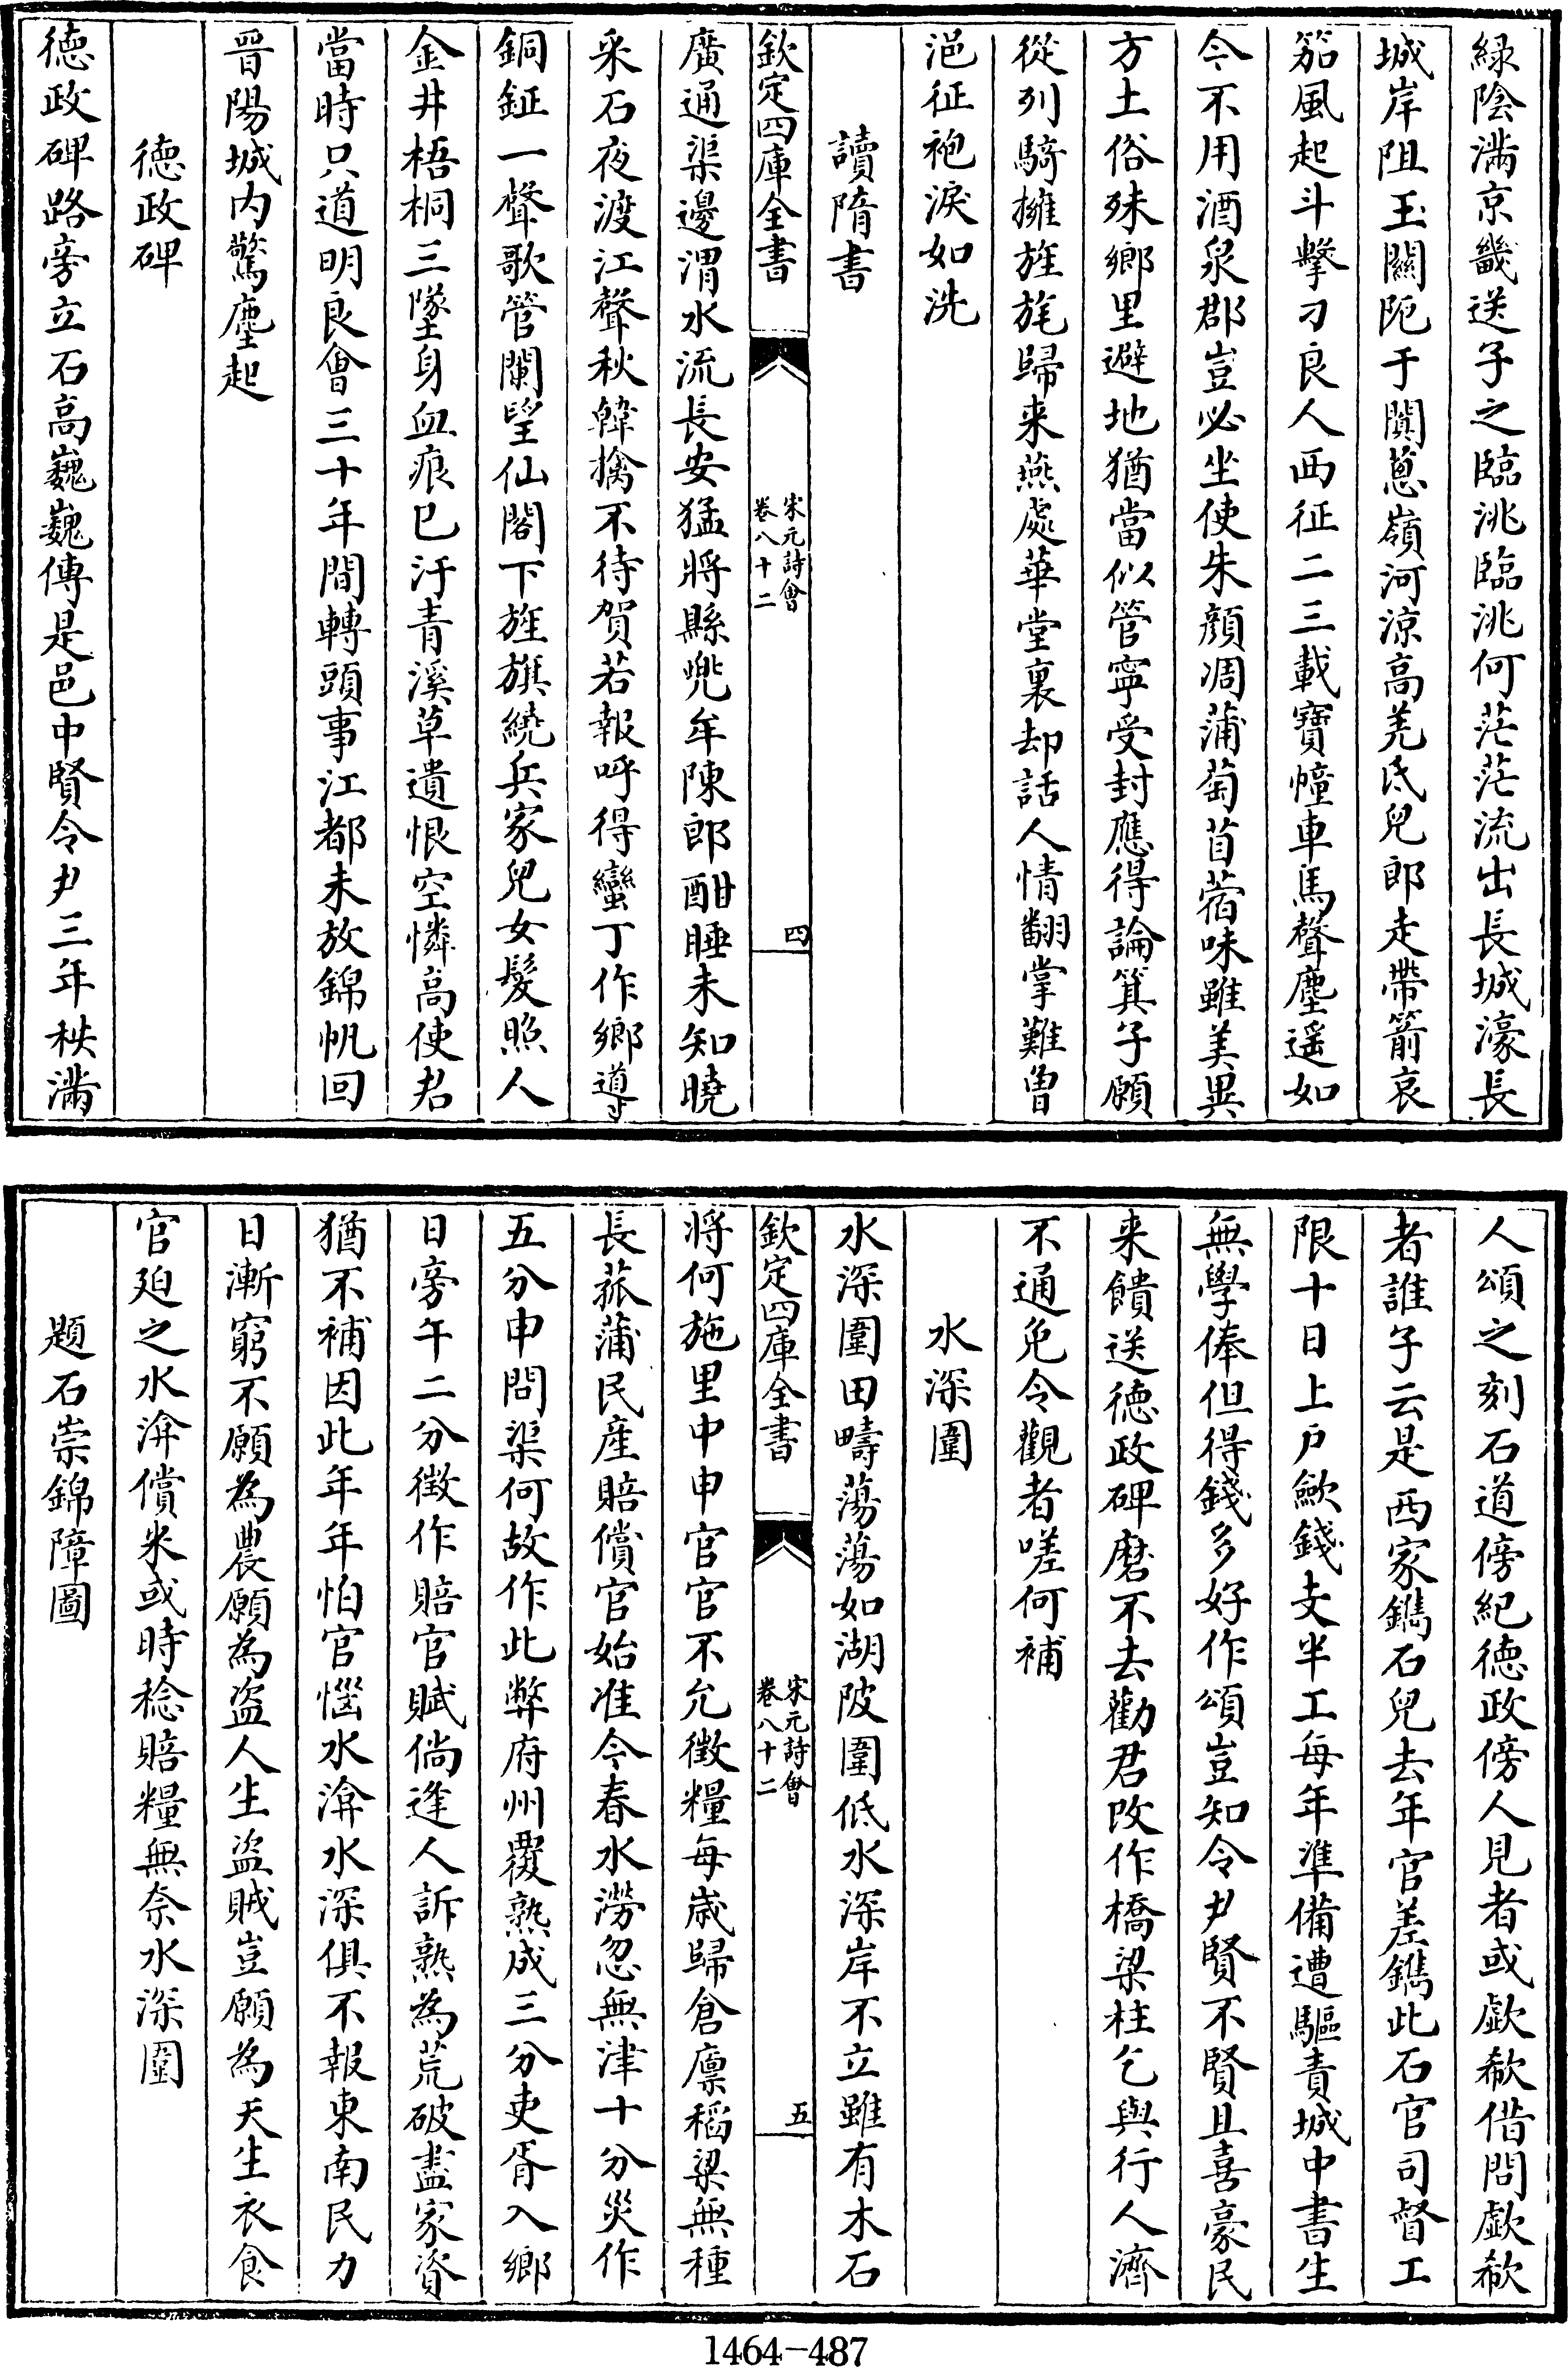 緑陰滿京畿送子之臨洮臨洮何茫茫流出長城濠長
城岸阻玉關阨于闐葱嶺河涼高羌氐兒郎走帶箭哀
笳風起斗擊刁良人西征二三載寳幢車馬聲塵遥如
今不用酒泉郡豈必坐使朱顔凋蒲萄苜蓿味雖美異
方土俗殊鄉里避地猶當似管寧受封應得論箕子願
從列騎擁旌旄歸来燕處華堂裏却話人情翻掌難曽
浥征袍淚如洗
讀隋書
欽定四庫全書
宋元詩會
卷八十二
四
廣通渠邊渭水流長安猛將縣兠牟陳郎酣睡未知曉
采石夜渡江聲秋韓擒不待賀若報呼得蠻丁作鄉導
銅鉦一聲歌管闌望仙閣下旌旗繞兵家兒女髮照人
金井梧桐三墜身血痕已汙青溪草遺恨空憐高使君
當時只道明良會三十年間轉頭事江都未放錦帆回
晉陽城内驚塵起
徳政碑
徳政碑路旁立石高巍巍傳是邑中賢令尹三年秩滿
人頌之刻石道傍紀徳政傍人見者或歔欷借問歔欷
者誰子云是西家鐫石兒去年官差鐫此石官司督工
限十日上戸歛錢支半工每年準備遭驅責城中書生
無學俸但得錢多好作頌豈知令尹賢不賢且喜豪民
来饋送徳政碑磨不去勸君改作橋梁柱乞與行人濟
不通免令觀者嗟何補
水深圍
水深圍田疇蕩蕩如湖陂圍低水深岸不立雖有木石
欽定四庫全書
宋元詩會
卷八十二
五
將何施里中申官官不允徴糧每歳歸倉廪稻粱無種
長菰蒲民産賠償官始准今春水澇忽無津十分災作
五分申問渠何故作此弊府州覆熟成三分吏胥入鄉
日旁午二分徴作賠官賦倘逢人訴熟為荒破盡家資
猶不補因此年年怕官惱水渰水深俱不報東南民力
日漸窮不願為農願為盜人生盜賊豈願為天生衣食
官廹之水渰償米或時稔賠糧無奈水深圍
題石崇錦障圖
1464-487